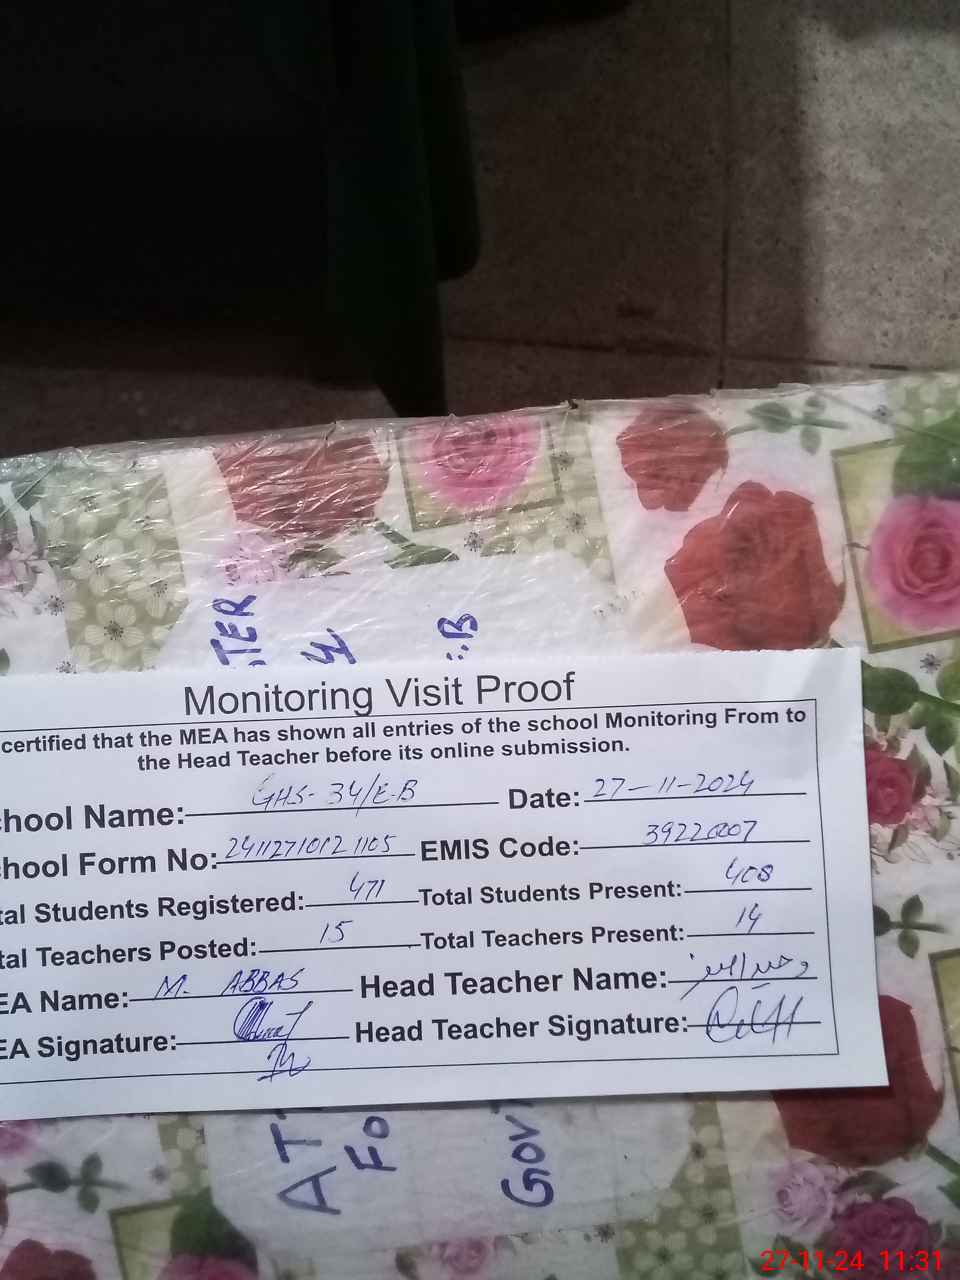 TER
4
:.B
Monitoring Visit Proof
certified that the MEA has shown all entries of the school Monitoring From to
the Head Teacher before its online submission.
hool Name: GHS- 34/E.B Date: 27-11-2024
hool Form No: EMIS Code: 39220007
tal Students Registered: 471 Total Students Present: 408
tal Teachers Posted: 15 Total Teachers Present: 14
EA Name: M. ABBAS Head Teacher Name:
EA Signature: Head Teacher Signature:
ATT
Fo
GOVT
27-11-24 11:31